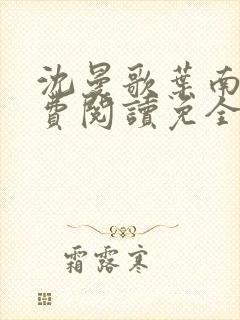 沈曼歌葉南
費閱讀免全
霜露寒